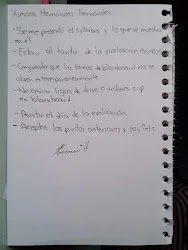 Ximena Hernández Hernández
- Se me presentó el syllabus y lo que se muestra
en él
- Estar al tanto de la evaluación
- Comprendo que las tareas de blackboard no se
abren extemporaneamente
- No enviar ligas de drive o archivos zip
en blackboard
- Asistir el día de la evaluación
- Acepto los puntos anteriores y soy feliz